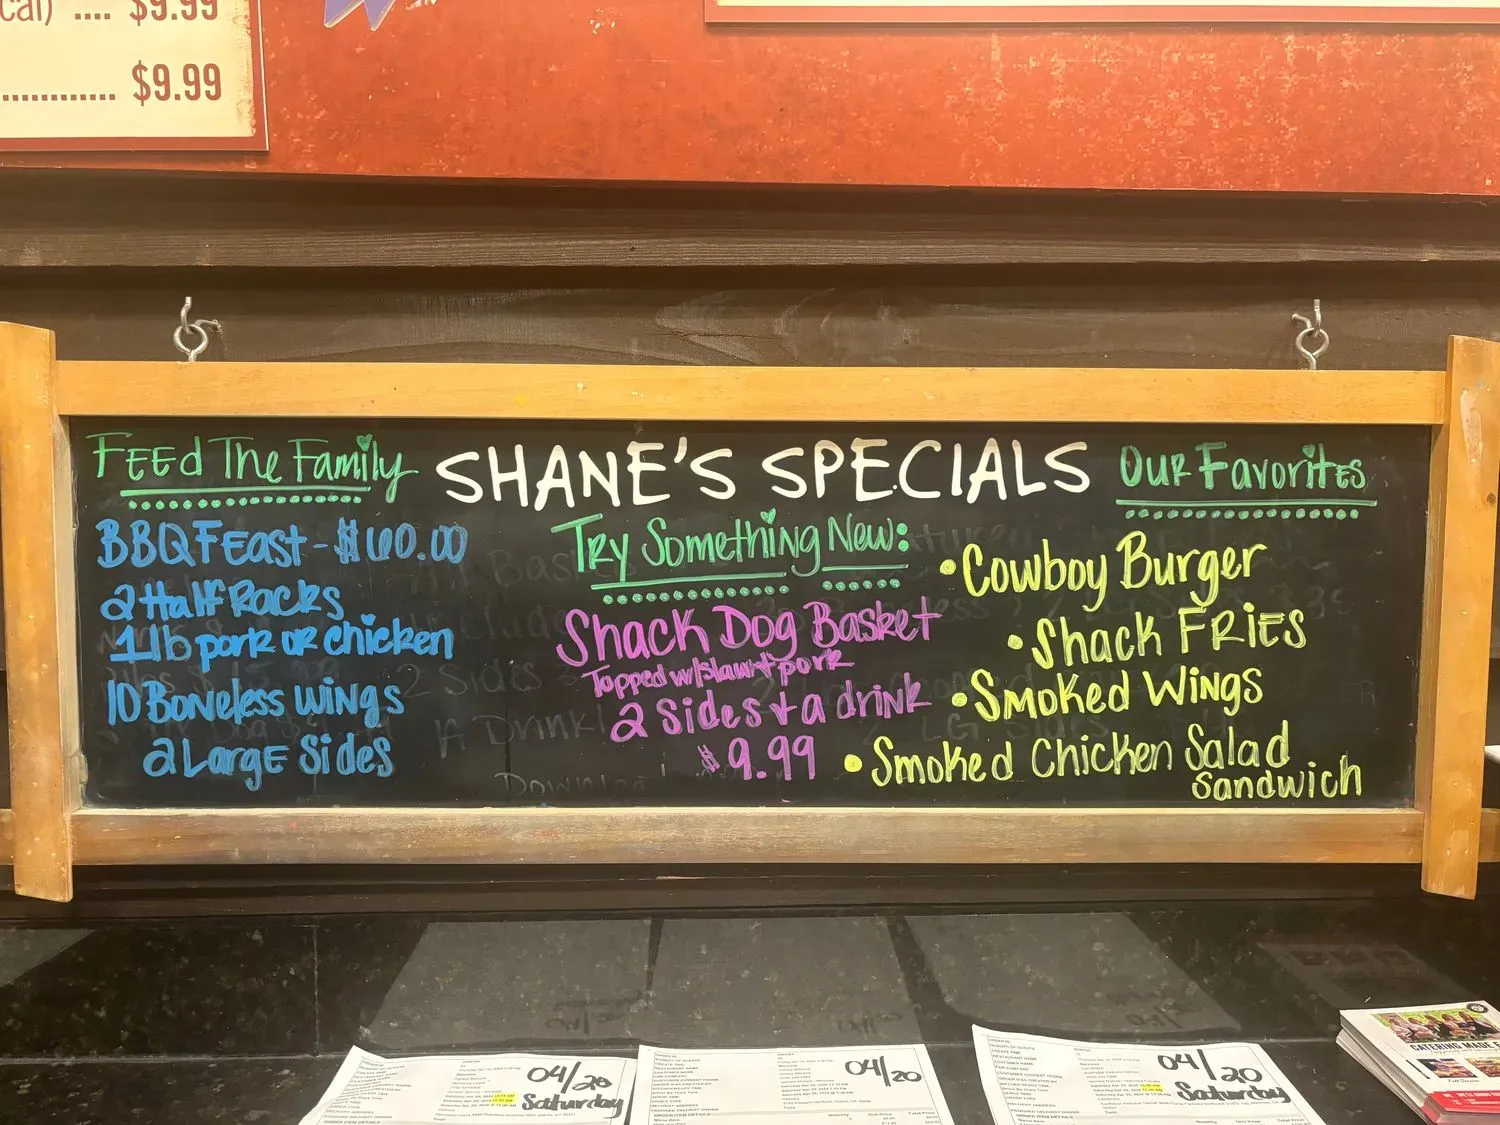 cal) .... $9.99
............ $9.99
SHANE'S SPECIALS
FEEd The Family
BBQ FEast - $60.00
2 Half Racks
1 lb pork or chicken
10 Boneless wings
2 Large Sides
Try Something New:
Shack Dog Basket
Topped w/slaw + pork
2 Sides + a drink
$9.99
Our Favorites
• Cowboy Burger
• Shack FRiES
• Smoked Wings
• Smoked Chicken Salad
Sandwich
04/20
Saturday
04/20
04/20
Saturday
CATERING MADE